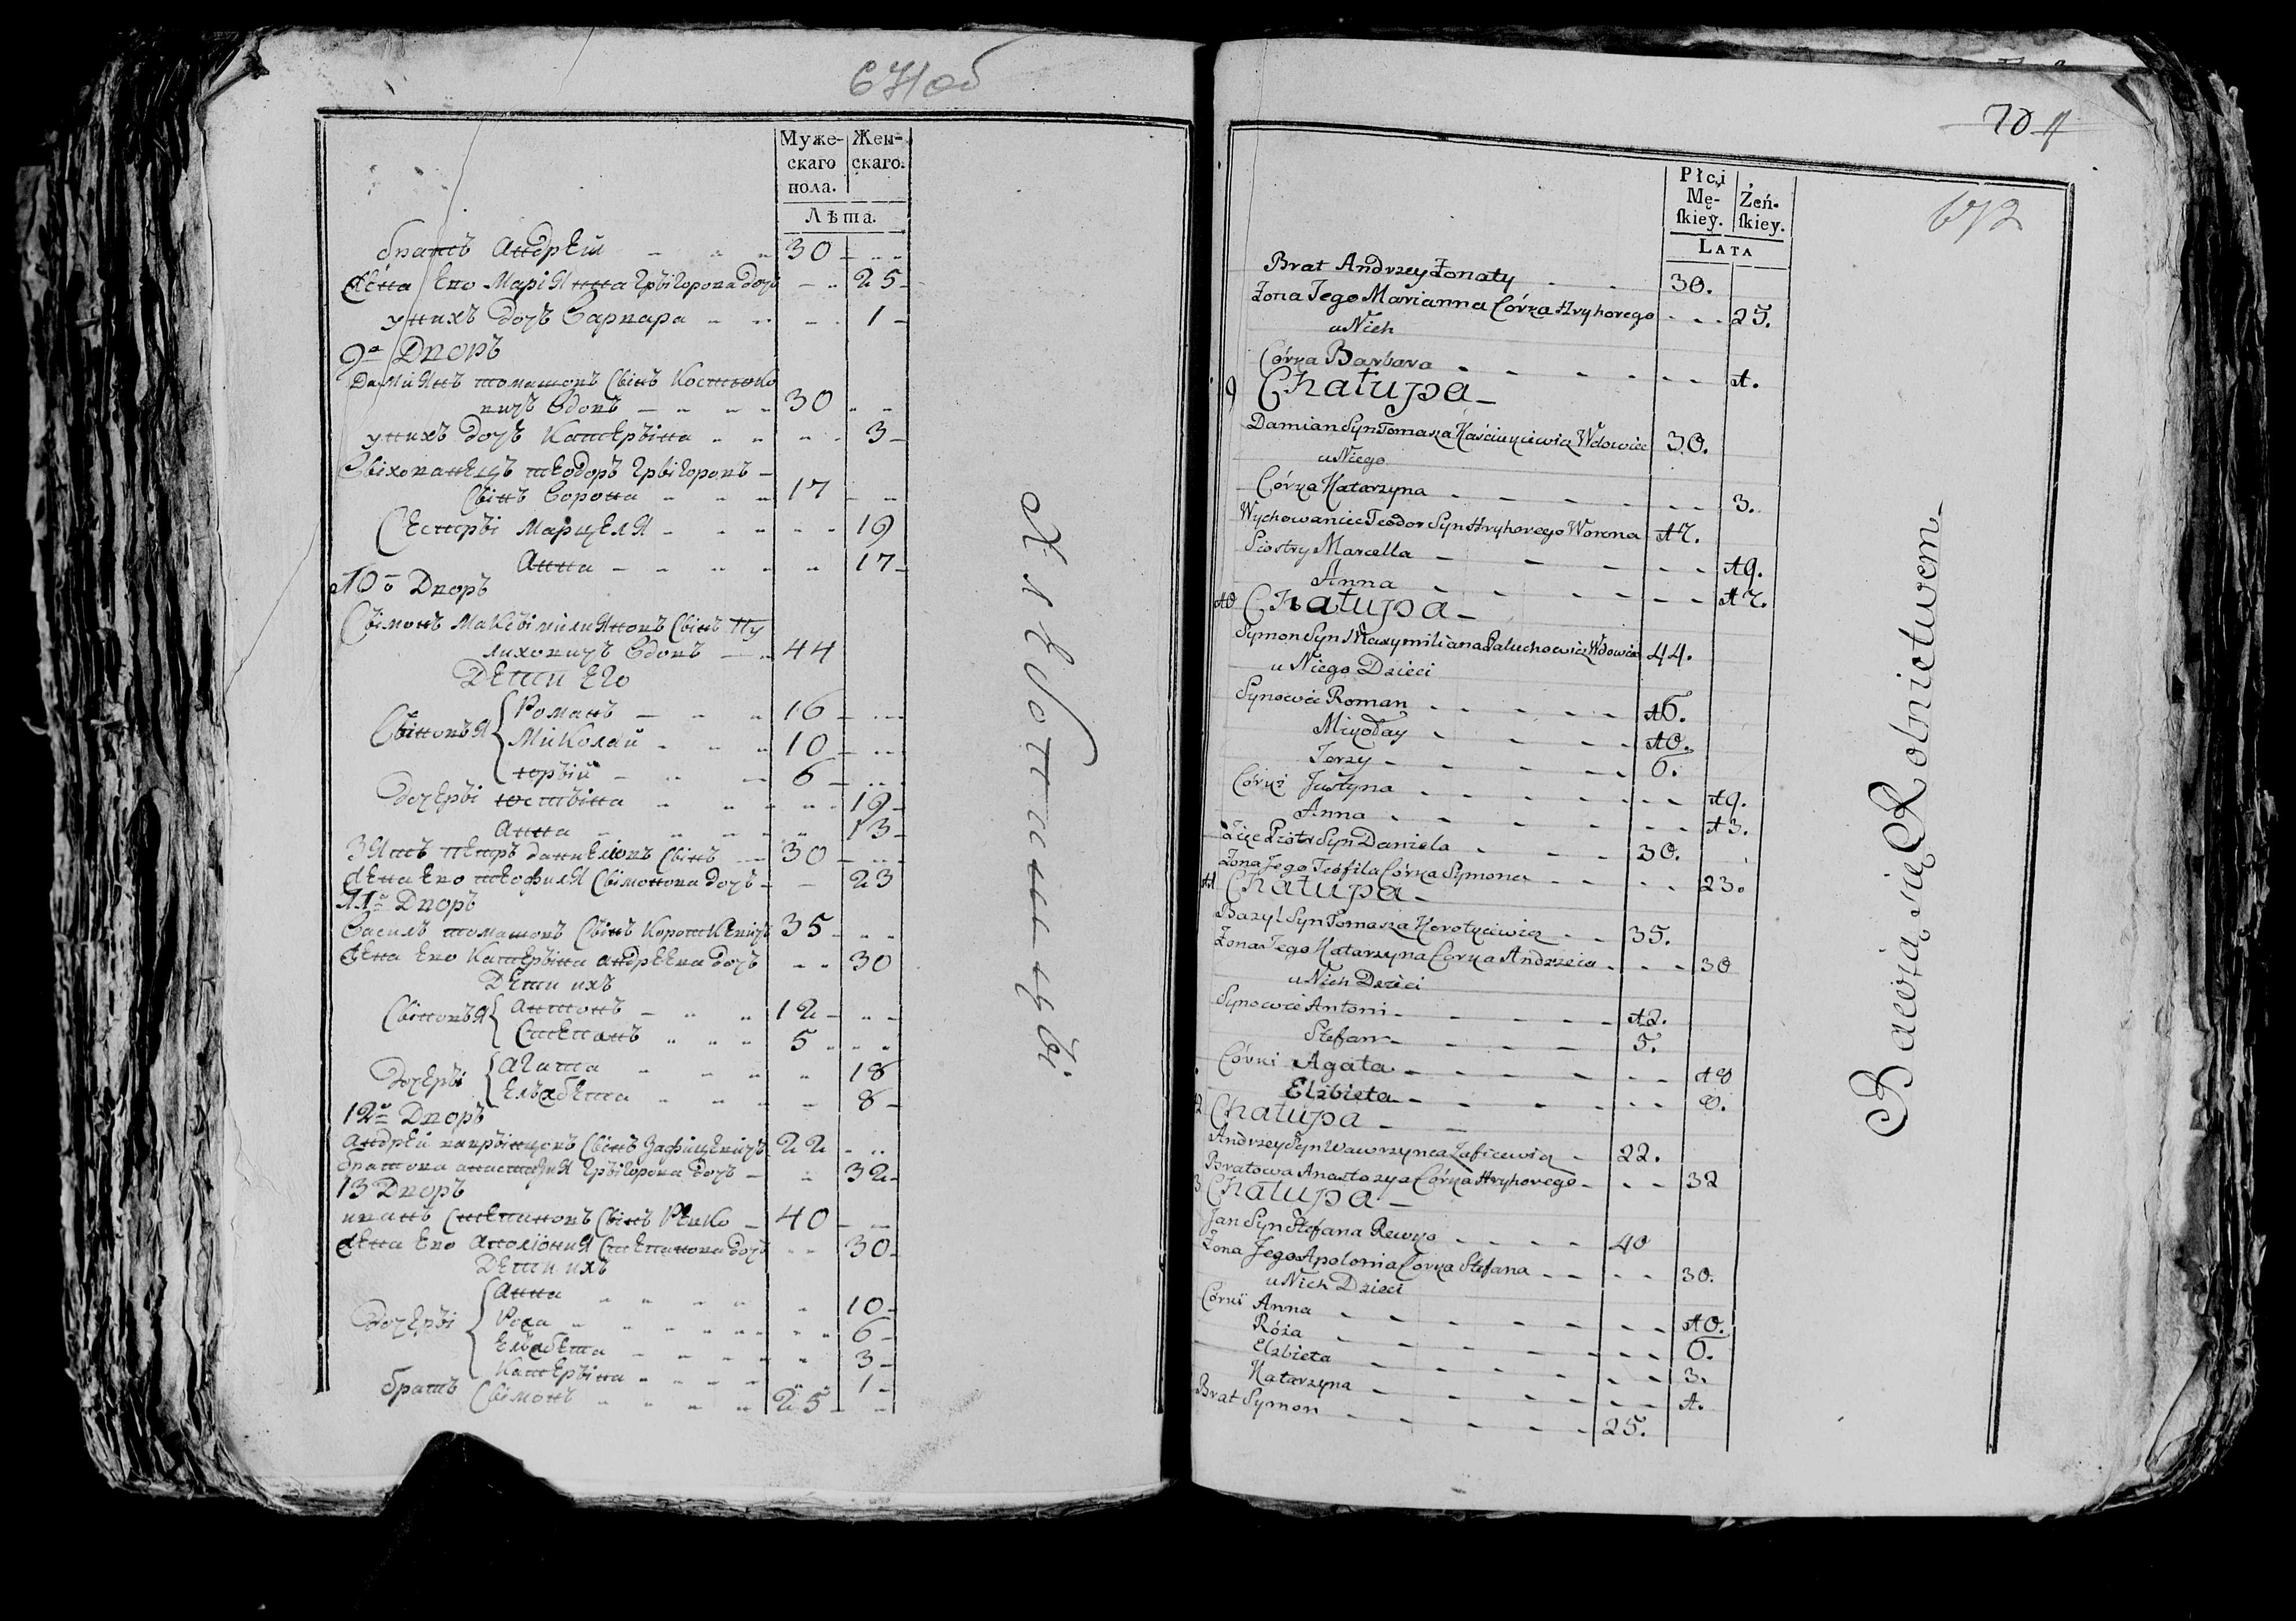 671 об
Муже-скаго пола. Жен-скаго.
Лѣта.
братъ Андрей 30
Жена Его Маріянна Грыгорова дочь 25
у нихъ дочъ Варвара 1
9й Дворъ
Даміянъ томашовъ Сынъ Костюке
вичъ Вдовъ 30
у нихъ дочъ Катерына 3
Выхованецъ теодоръ Грыгоровъ
Сынъ Ворона 17
Сестры Марцеля 19
Анна 17
10й Дворъ
Сымонъ Максымиляновъ Сынъ Пу
лиховичъ Вдовъ 44
Дети Его
Сыновья Романъ 16
Миколай 10
юрый 6
дочеры юстына 19
Анна 13
Зять петръ даниеловъ Сынъ 30
Жена Его теофиля Сымонова дочъ 23
11й Дворъ
Василъ томашовъ Сынъ Короткевичъ 35
Жена Его Катерына андреева дочъ 30
Дети ихъ
Сыновья антонъ 12
Степанъ 5
Дочеры Агата 18
Елжбета 8
12й Дворъ
Андрей ваврынцовъ Сынъ Зафицевичъ 22
братова анастазия Грыгорова дочъ 32
13 Дворъ
иванъ Степановъ Сынъ Ревко 40
Жена Его Аполіония Степанова дочъ 30
Дети ихъ
Дочеры Анна 10
Рожа 6
Елжбета 3
Катерына 1
братъ Сымонъ 25
Хлеботашцы.
70
672
Płci Mę-ſkiey. Żeń-ſkiey.
Lata
Brat Andrzey Żonaty 30.
Żona Jego Marianna Córka Hryhorego 25.
u Nich
Córka Barbara 1.
9 Chałupa
Damian Syn Tomasza Kaściuciewicz Wdowiec 30.
u Niego
Córka Katarzyna 3.
Wychowaniec Teodor Syn Hryhorego Worona 17.
Siostry Marcella 19.
Anna 17.
10 Chałupa
Symon Syn Maxymiliana Paluchowicz Wdowiec 44.
u Niego Dzieci
Synowie Roman 16.
Mikołay 10.
Jerzy 6.
Córki Justyna 19.
Anna 13.
Zięć Piotr Syn Daniela 30.
Żona Jego Teofila Córka Symona 23.
11 Chałupa
Bazyl Syn Tomasza Korotkiewicz 35.
Żona Jego Katarzyna Corka Andrzeia 30
u Nich Dzieci
Synowie Antoni 12.
Stefan 5.
Córki Agata 18
Elzbieta 8.
12 Chałupa
Andrzey Syn Wawrzynca Zaficewicz 22.
Bratowa Anastazya Córka Hryhorego 32
13 Chałupa
Jan Syn Stefana Rewko 40
Żona Jego Apolonia Corka Stefana 30.
u Nich Dzieci
Corki Anna 10.
Róża 6.
Elzbieta 3.
Katarzyna 1.
Brat Symon 25.
Bawią się Rolnictwem